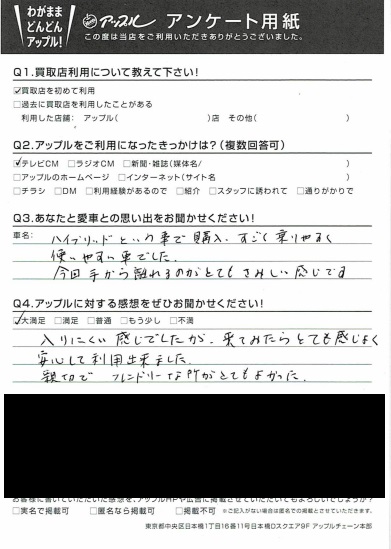 わがまま
どんどん
アップル!
アップル アンケート用紙
この度は当店をご利用いただきありがとうございました。
Q1.買取店利用について教えて下さい!
☑買取店を初めて利用
□過去に買取店を利用したことがある
利用した店舗: アップル( )店 その他( )
Q2.アップルをご利用になったきっかけは?(複数回答可)
☑テレビCM □ラジオCM □新聞・雑誌(媒体名/ )
□アップルのホームページ □インターネット(サイト名 )
□チラシ □DM □利用経験があるので □紹介 □スタッフに誘われて □通りがかりで
Q3.あなたと愛車との思い出をお聞かせください!
車名: ハイブリッドという車で購入、すごく乗りやすく
使いやすい車でした。
今回手から離れるのがとてもさみしい感じです
Q4.アップルに対する感想をぜひお聞かせください!
☑大満足 □満足 □普通 □もう少し □不満
入りにくい感じでしたが、来てみたらとても感じよく
安心して利用出来ました。
親切でフレンドリーな所がとてもよかった。
お客様に書いていただいた感想を、アップルHPや広告に掲載させていただいてもよろしいでしょうか?
□実名で掲載可 □匿名なら掲載可 □掲載不可 ※ご記入がない場合は匿名での掲載とさせていただきます。
東京都中央区日本橋1丁目16番11号日本橋Dスクエア9F アップルチェーン本部